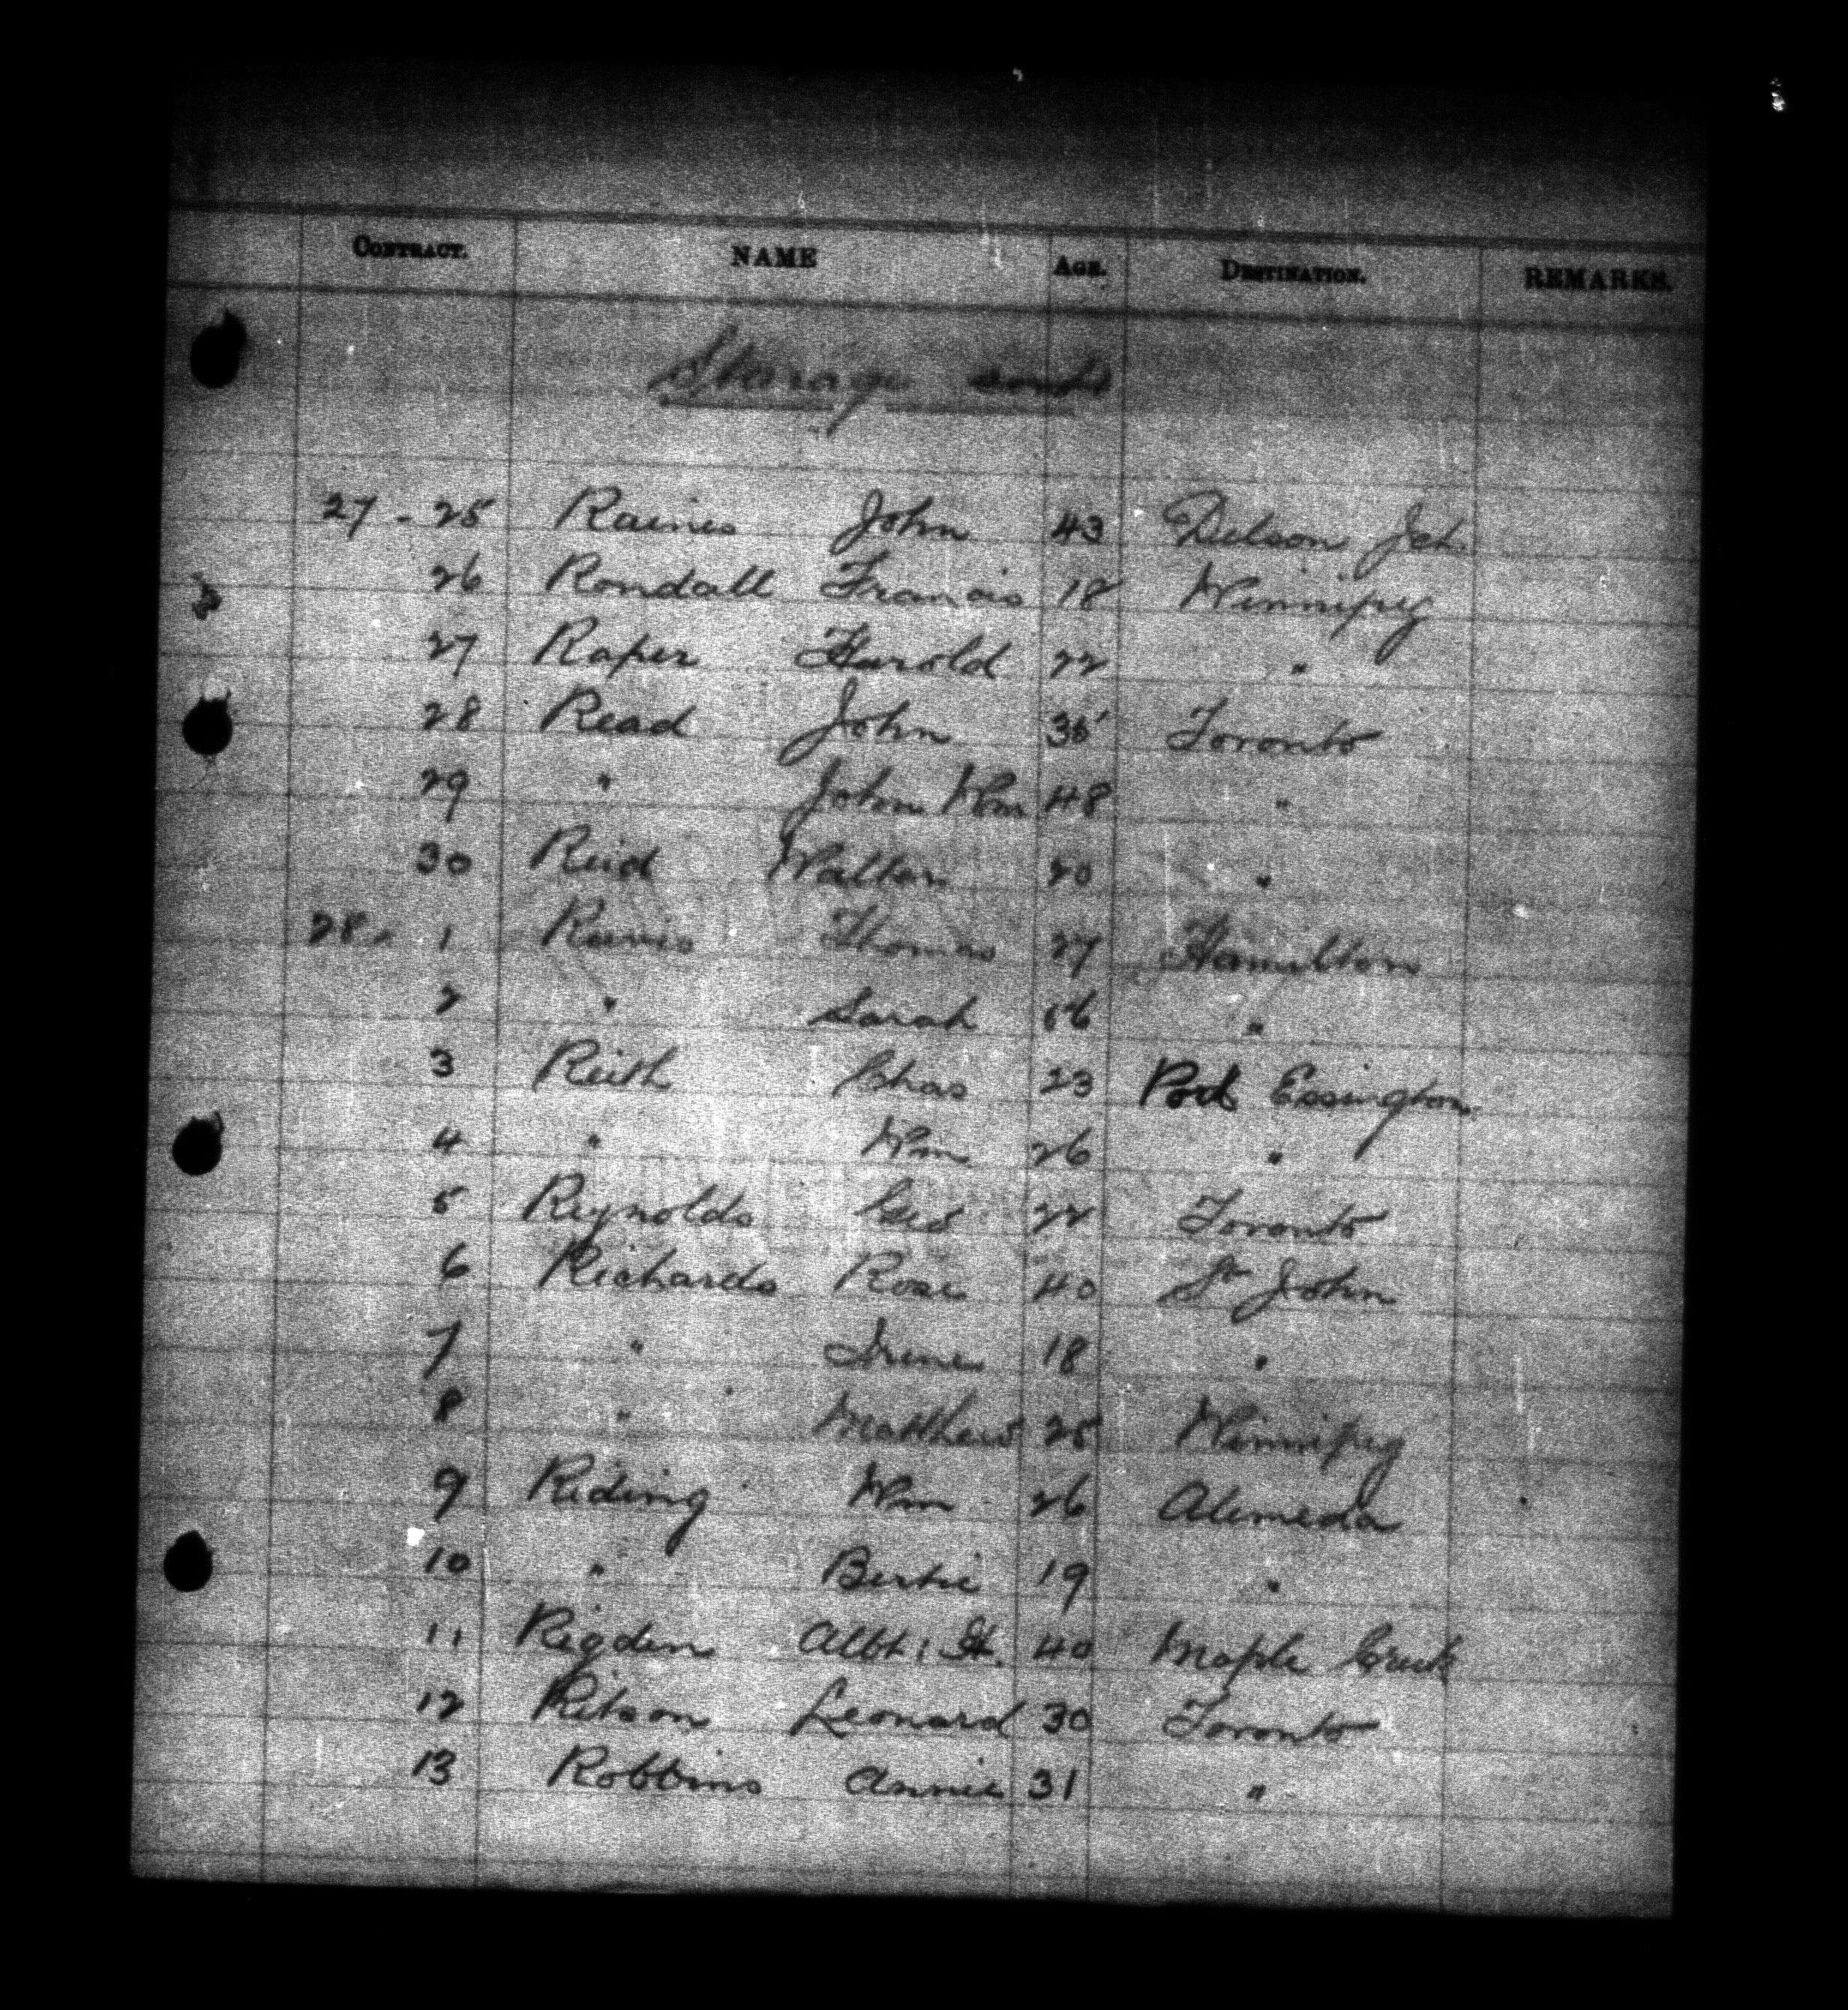 CONTRACT. NAME AGE. DESTINATION. REMARKS.
Steerage contd
27 - 25 Raines John 43 Delson Jct.
26 Rondall Francis 18 Winnipeg
27 Raper Harold 22 "
28 Read John 35 Toronto
29 " John Wm 48 "
30 Reid Walton 20 "
28 - 1 Reevis Thomas 27 Hamilton
2 " Sarah "
3 Reith Chas 23 Port Essington
4 " Wm 26 "
5 Reynolds Geo 22 Toronto
6 Richards Rose 40 St John
7 " Irene 18 "
8 " Matthew 25 Winnipeg
9 Riding Wm 26 Alemeda
10 " Bertie 19 "
11 Rigden Albt. H. 40 Maple Creek
12 Ritson Leonard 30 Toronto
13 Robbins Annie 31 "